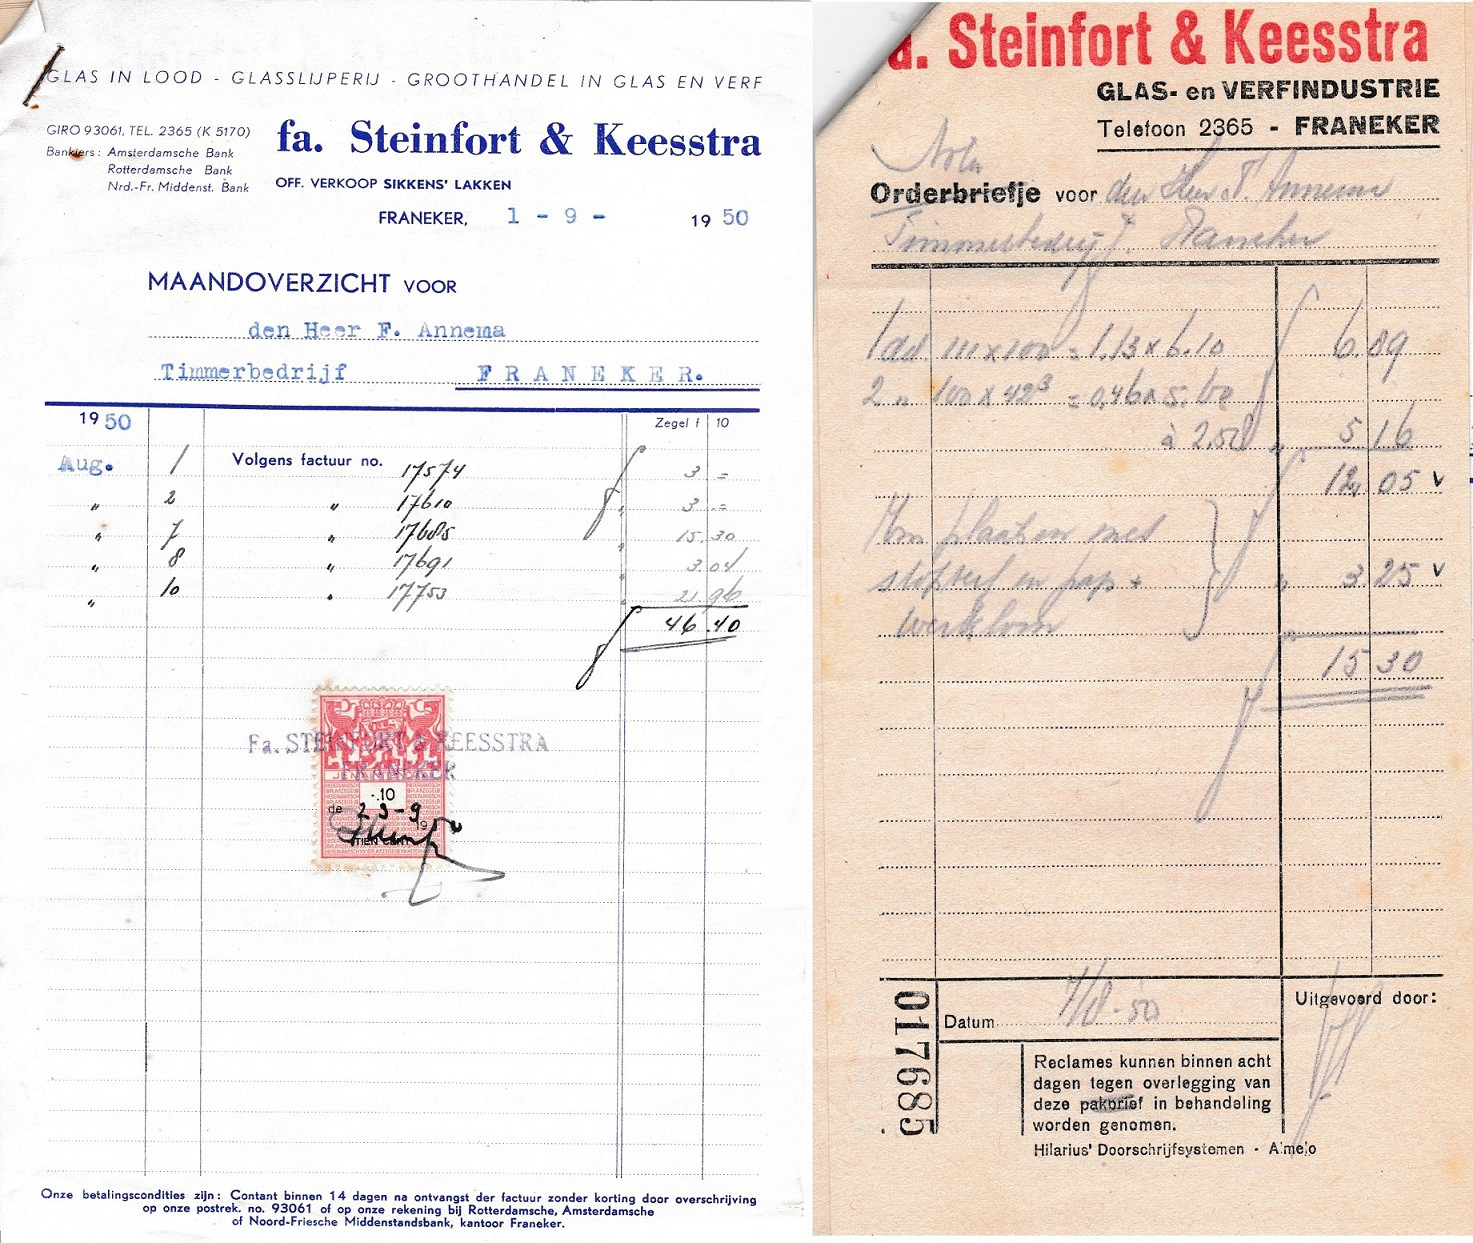 GLAS IN LOOD - GLASSLIJPERIJ - GROOTHANDEL IN GLAS EN VERF
GIRO 93061, TEL. 2365 (K 5170)
Bankiers: Amsterdamsche Bank
Rotterdamsche Bank
Nrd.-Fr. Middenst. Bank
fa. Steinfort & Keesstra
OFF. VERKOOP SIKKENS' LAKKEN
FRANEKER, 1 - 9 - 1950
MAANDOVERZICHT VOOR
den Heer F. Annema
Timmerbedrijf FRANEKER.
1950 Zegel f 10
Aug. 1 Volgens factuur no. 17574 3 =
" 2 " 17610 " 3 .=
" 7 " 17685 " 15.30
" 8 " 17691 " 3.04
" 10 " 17753 " 21.96
46.40
Fa. STEINFORT & KEESSTRA
FRANEKER
-.10
de 23-9 19
TIEN CENT
Onze betalingscondities zijn: Contant binnen 14 dagen na ontvangst der factuur zonder korting door overschrijving
op onze postrek. no. 93061 of op onze rekening bij Rotterdamsche, Amsterdamsche
of Noord-Friesche Middenstandsbank, kantoor Franeker.
fa. Steinfort & Keesstra
GLAS- en VERFINDUSTRIE
Telefoon 2365 - FRANEKER
Nota
Orderbriefje voor den Heer F. Annema
Timmerbedrijf. Franeker
1 dd. 111 x 100 = 1.13 x 6.10 6.89
2 " 100 x 42³ = 0,46 x 5.60
à 2.58 " 5 16
12 05 v
Om plaatsen met
stopverf en pap +
werkloon " 3.25 v
15 30
017685
Datum 7/8-50
Uitgevoerd door:
Reclames kunnen binnen acht
dagen tegen overlegging van
deze pakbrief in behandeling
worden genomen.
Hilarius' Doorschrijfsystemen - Almelo